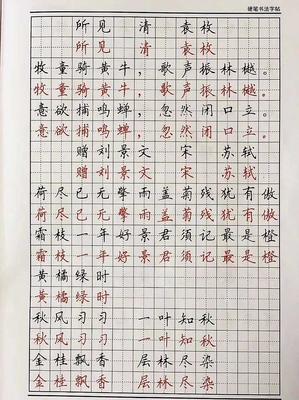 硬笔书法字帖
所见 清 袁枚
所见 清 袁枚
牧童骑黄牛，歌声振林樾。
牧童骑黄牛，歌声振林樾。
意欲捕鸣蝉，忽然闭口立。
意欲捕鸣蝉，忽然闭口立。
赠刘景文 宋 苏轼
赠刘景文 宋 苏轼
荷尽已无擎雨盖菊残犹有傲
荷尽已无擎雨盖菊残犹有傲
霜枝一年好景君须记最是橙
霜枝一年好景君须记最是橙
黄橘绿时
黄橘绿时
秋风习习 一叶知秋
秋风习习 一叶知秋
金桂飘香 层林尽染
金桂飘香 层林尽染